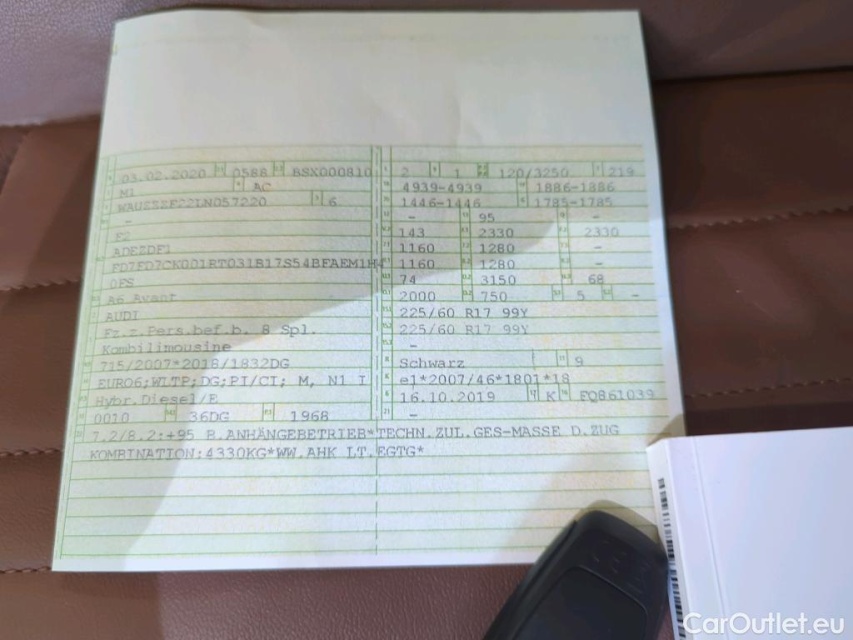 03.02.2020 0588 BSX000810 2 1 120/3250 219
M1 AC 4939-4939 1886-1886
6 1446-1446 1785-1785
- - 95 -
F2 143 2330 2330
1160 1280 -
1160 1280 -
0FS 74 3150 68
A6 Avant 2000 750 5 -
AUDI 225/60 R17 99Y
Fz.z.Pers.bef.b. 8 Spl. 225/60 R17 99Y
Kombilimousine -
715/2007*2018/1832DG Schwarz 9
EURO6;WLTP;DG;PI/CI; M, N1 I e1*2007/46*1801*18
Hybr.Diesel/E 16.10.2019 K FQ861039
0010 36DG 1968 -
7.2/8.2:+95 B.ANHÄNGEBETRIEB*TECHN.ZUL.GES-MASSE D.ZUG
KOMBINATION:4330KG*WW.AHK LT.EGTG*
CarOutlet.eu